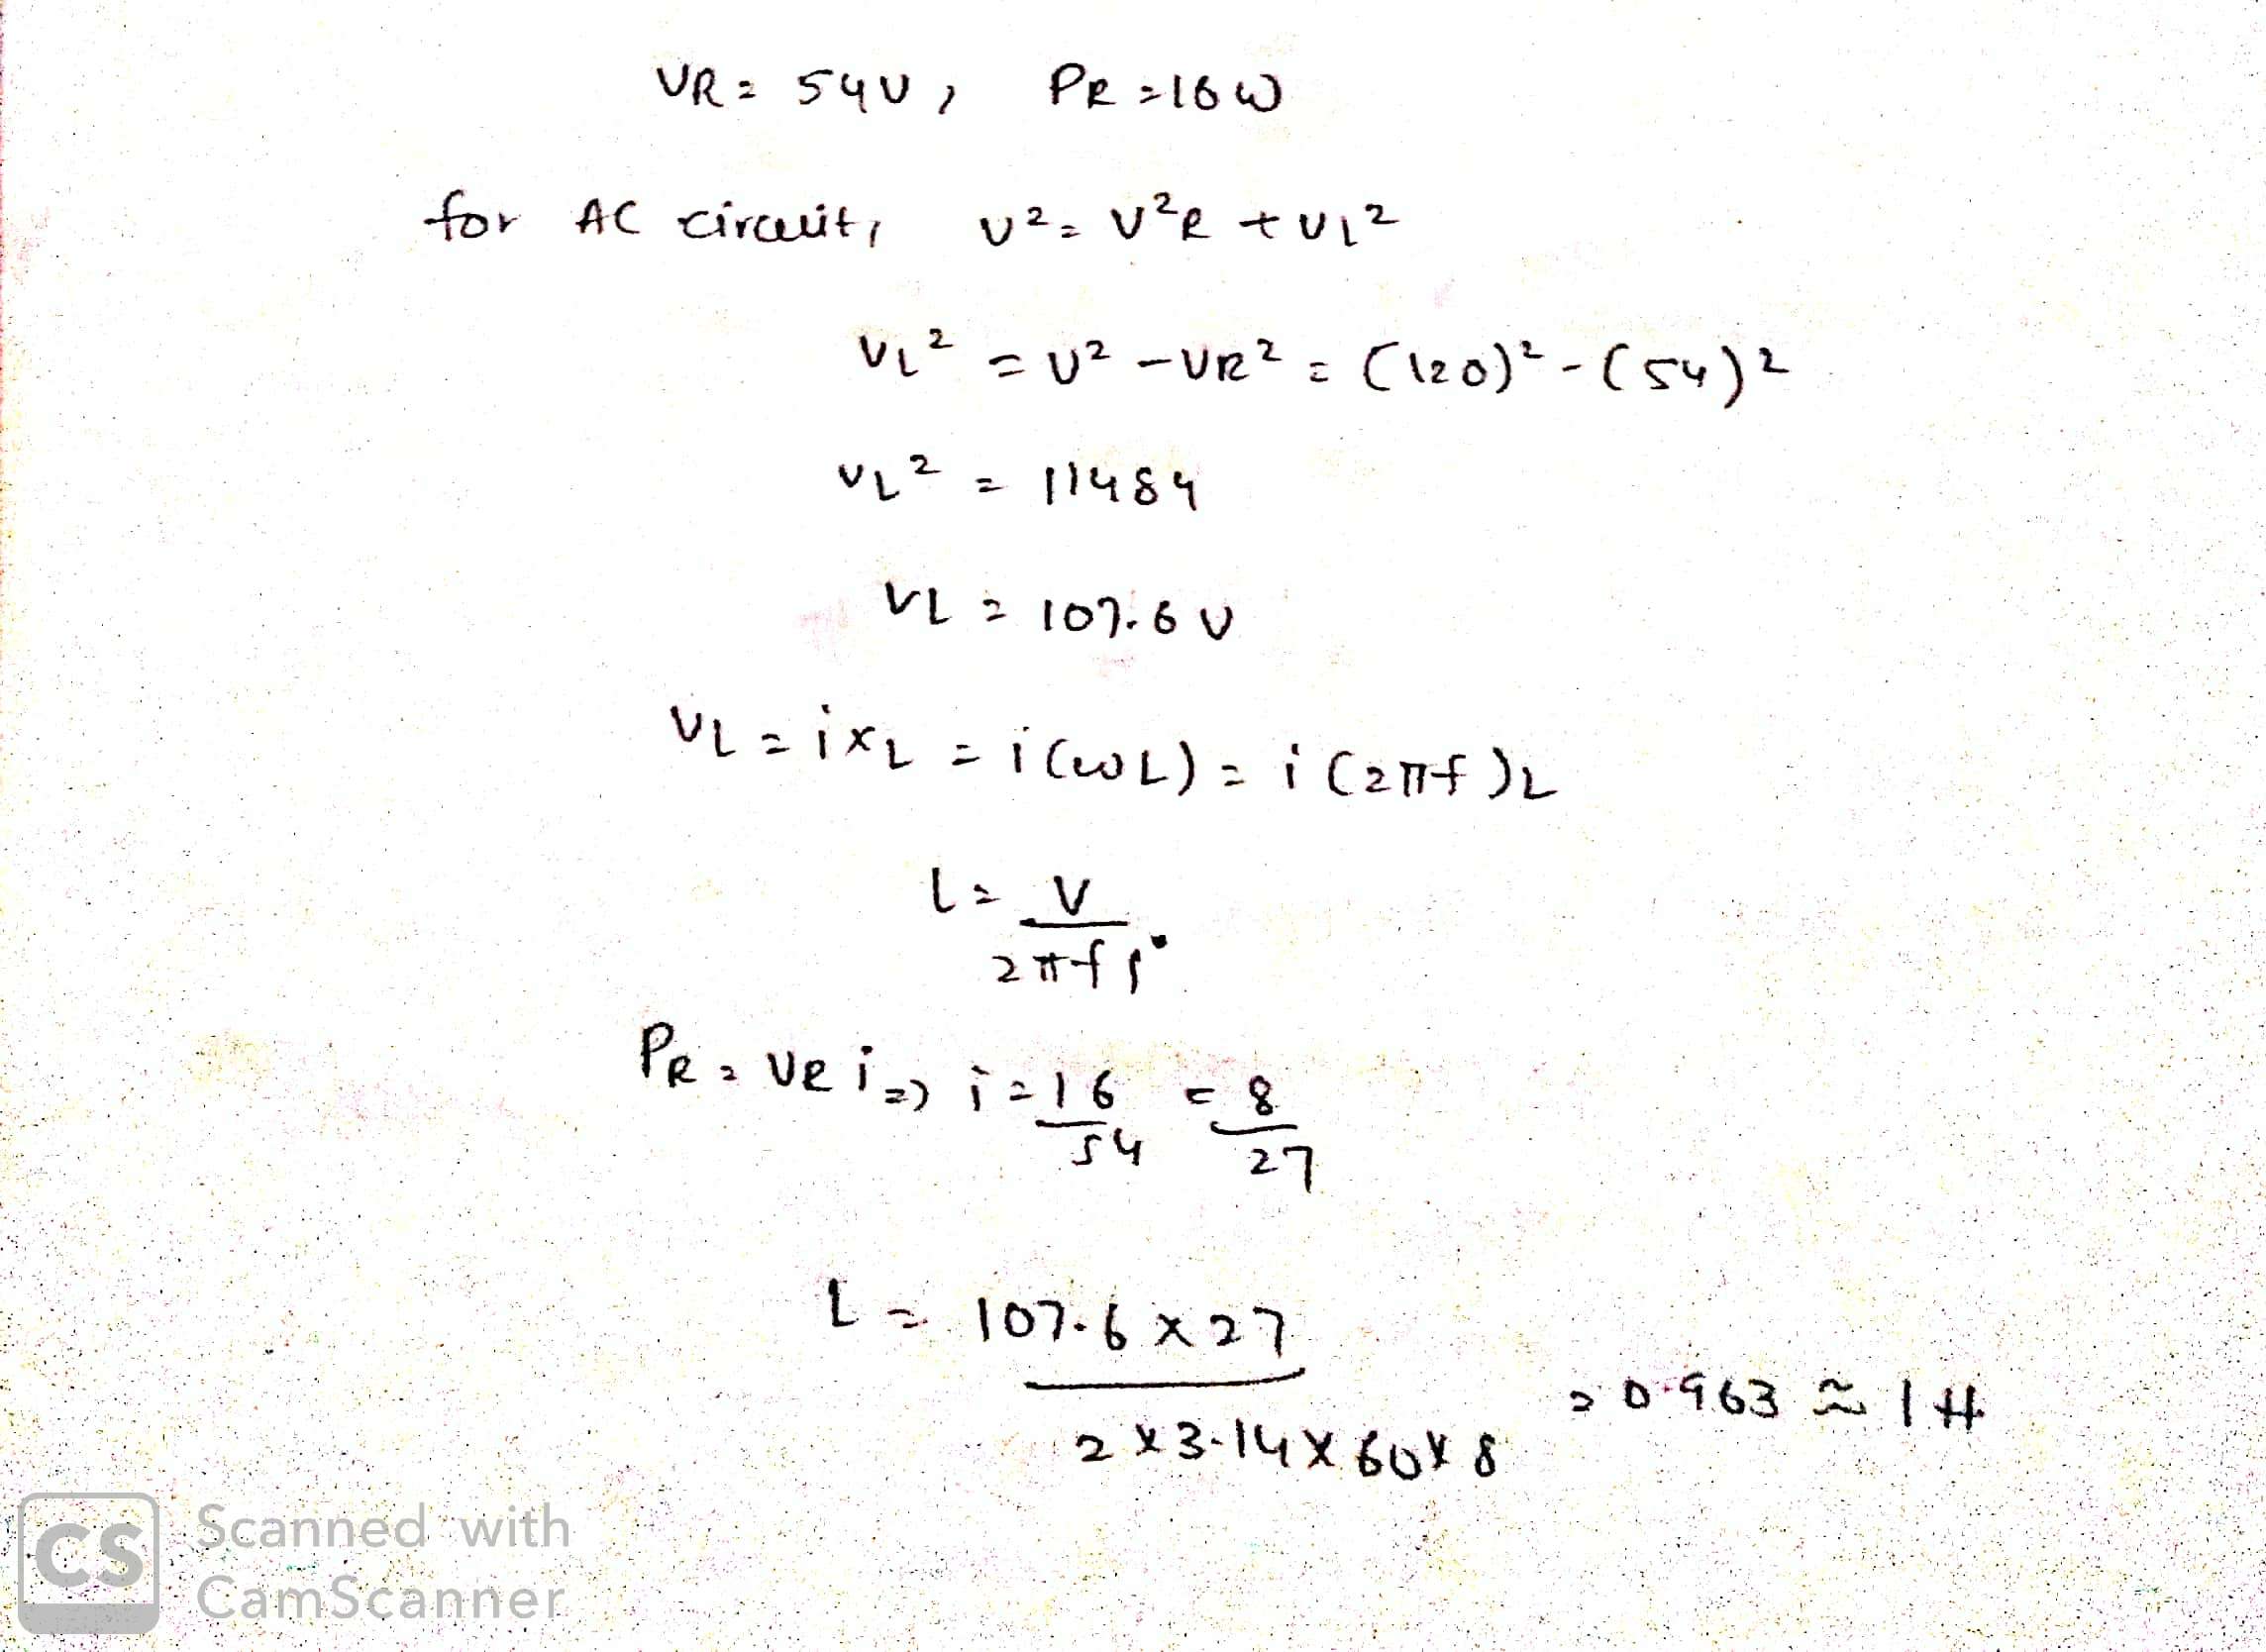 VR = 54V, PR = 16W
for AC circuit, V² = V²R + VL²
VL² = V² - VR² = (120)² - (54)²
VL² = 11484
VL = 107.6 V
VL = iXL = i(ωL) = i(2πf)L
L = V
2πfi
PR = VR i => i = 16 = 8
54 27
L = 107.6 x 27
2 x 3.14 x 60 x 8 = 0.963 ≈ 1H
CS Scanned with
CamScanner